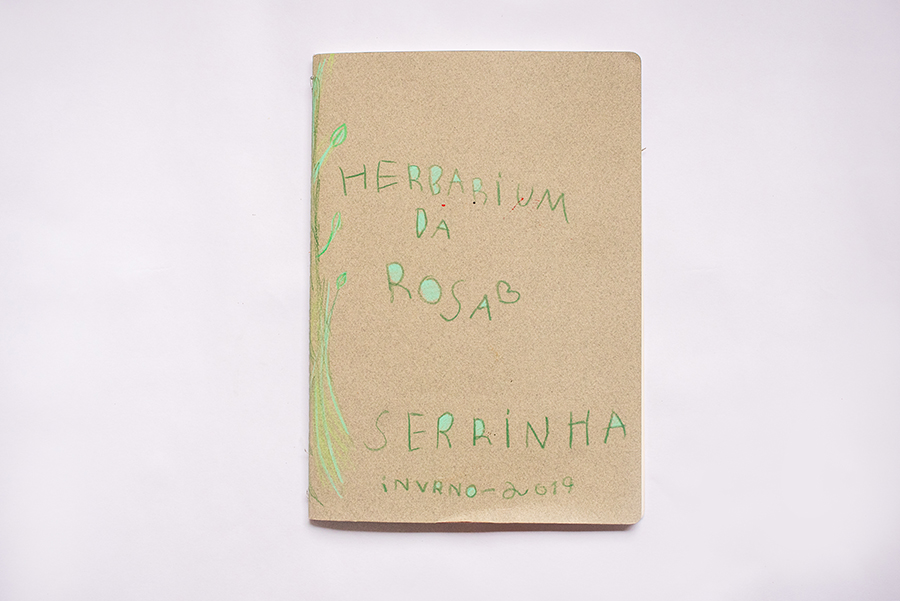 HERBARIUM
DA
ROSA
SERRINHA
INVRNO-2019